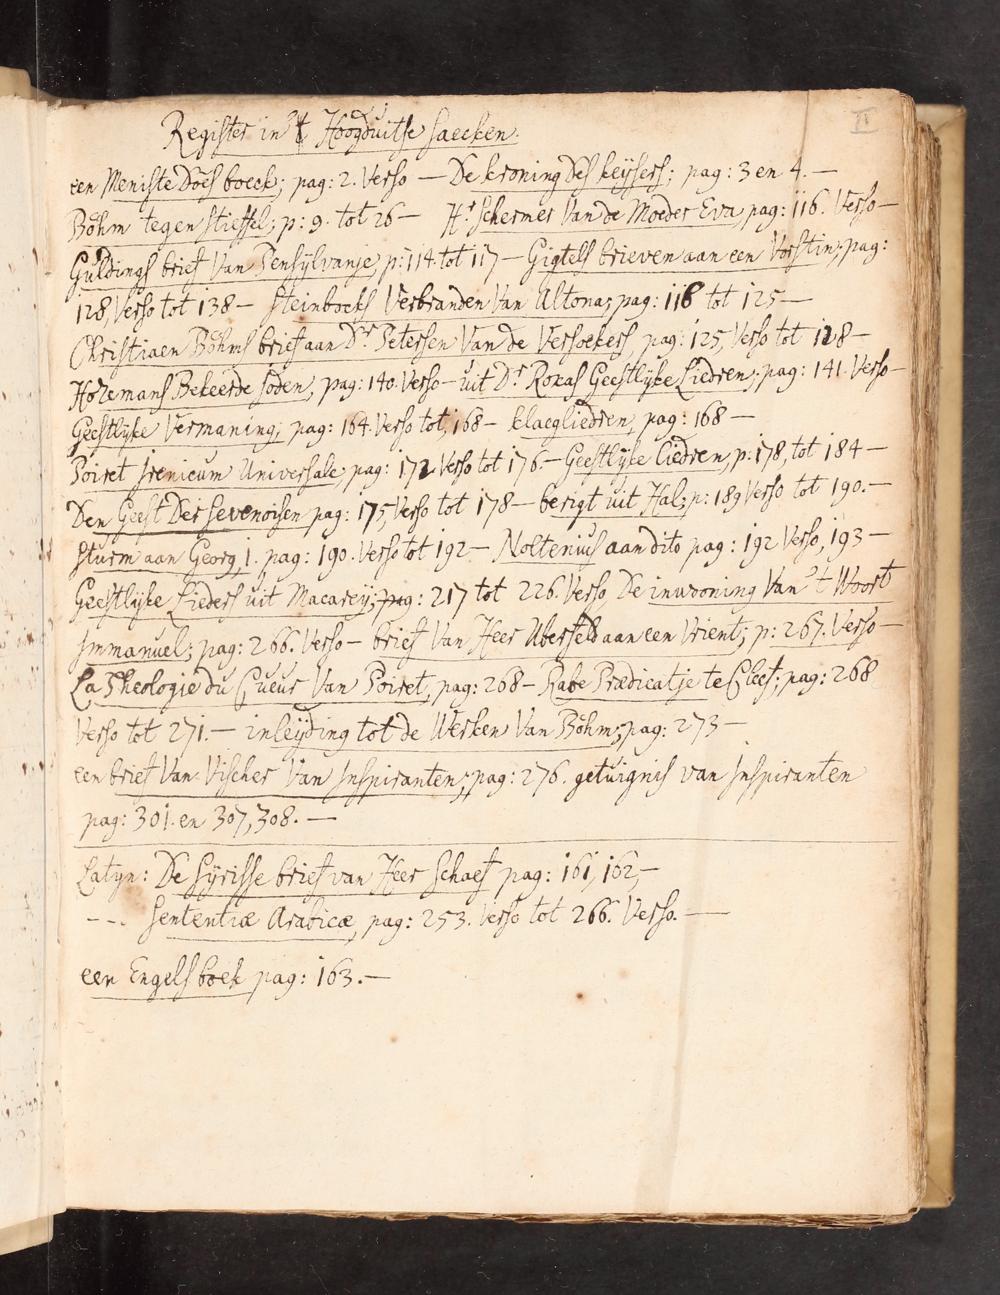 II
Register in 't Hoogduitse saecken.
een Meniste Does boeck; pag: 2. Verso — De kroning des keysers; pag: 3 en 4. —
Böhm tegen Stieffel; p: 9. tot 26 — Hr Schermer Van de Moeder Eva, pag: 116. Verso —
Guldings brief Van Pensylvanje, p: 114. tot 117 — Gigtels brieven aan een Vorstin; pag:
128, Verso tot 138 — Steinbocks Verbranden Van Altona; pag: 118 tot 125 —
Christiaen Böhms brief aan Dr Petersen Van de Versoekers pag: 125, Verso tot 128 —
Hozemans Bekeerde Joden, pag: 140. Verso — uit Dr Roxas Geestlyke Liedren; pag: 141. Verso —
Geestlyke Vermaning, pag: 164. Verso tot, 168 — klaegliedren, pag: 168 —
Poiret Irenicum Universale, pag: 172 Verso tot 176. — Geestlyke Liedren, p: 178, tot 184 —
Den Geest Der Sevenoisen pag: 175, Verso tot 178 — berigt uit Hal; p: 189 Verso tot 190. —
Sturm aan Georg 1. pag: 190. Verso tot 192 — Noltenius aan dito pag: 192 Verso, 193 —
Geestlijke Lieders uit Macarey; pag: 217 tot 226. Verso, De inwooning Van 't Woort
Immanuel; pag: 266. Verso — brief Van Heer Uberfeld aan een Vrient; p: 267. Verso —
La Theologie du Cueur Van Poiret, pag: 268 — Rabe Prædicatje te Cleef; pag: 268
Verso tot 271. — inleyding tot de Werken Van Böhm; pag: 273 —
een brief Van Vischer Van Inspiranten; pag: 276. getuignis van Inspiranten
pag: 301. en 307, 308. —
Latyn: De Syrisse brief van Heer Schaef pag: 161, 162, —
--- Sententiæ Arabicæ, pag: 253. Verso tot 266. Verso. —
een Engels boek pag: 163. —